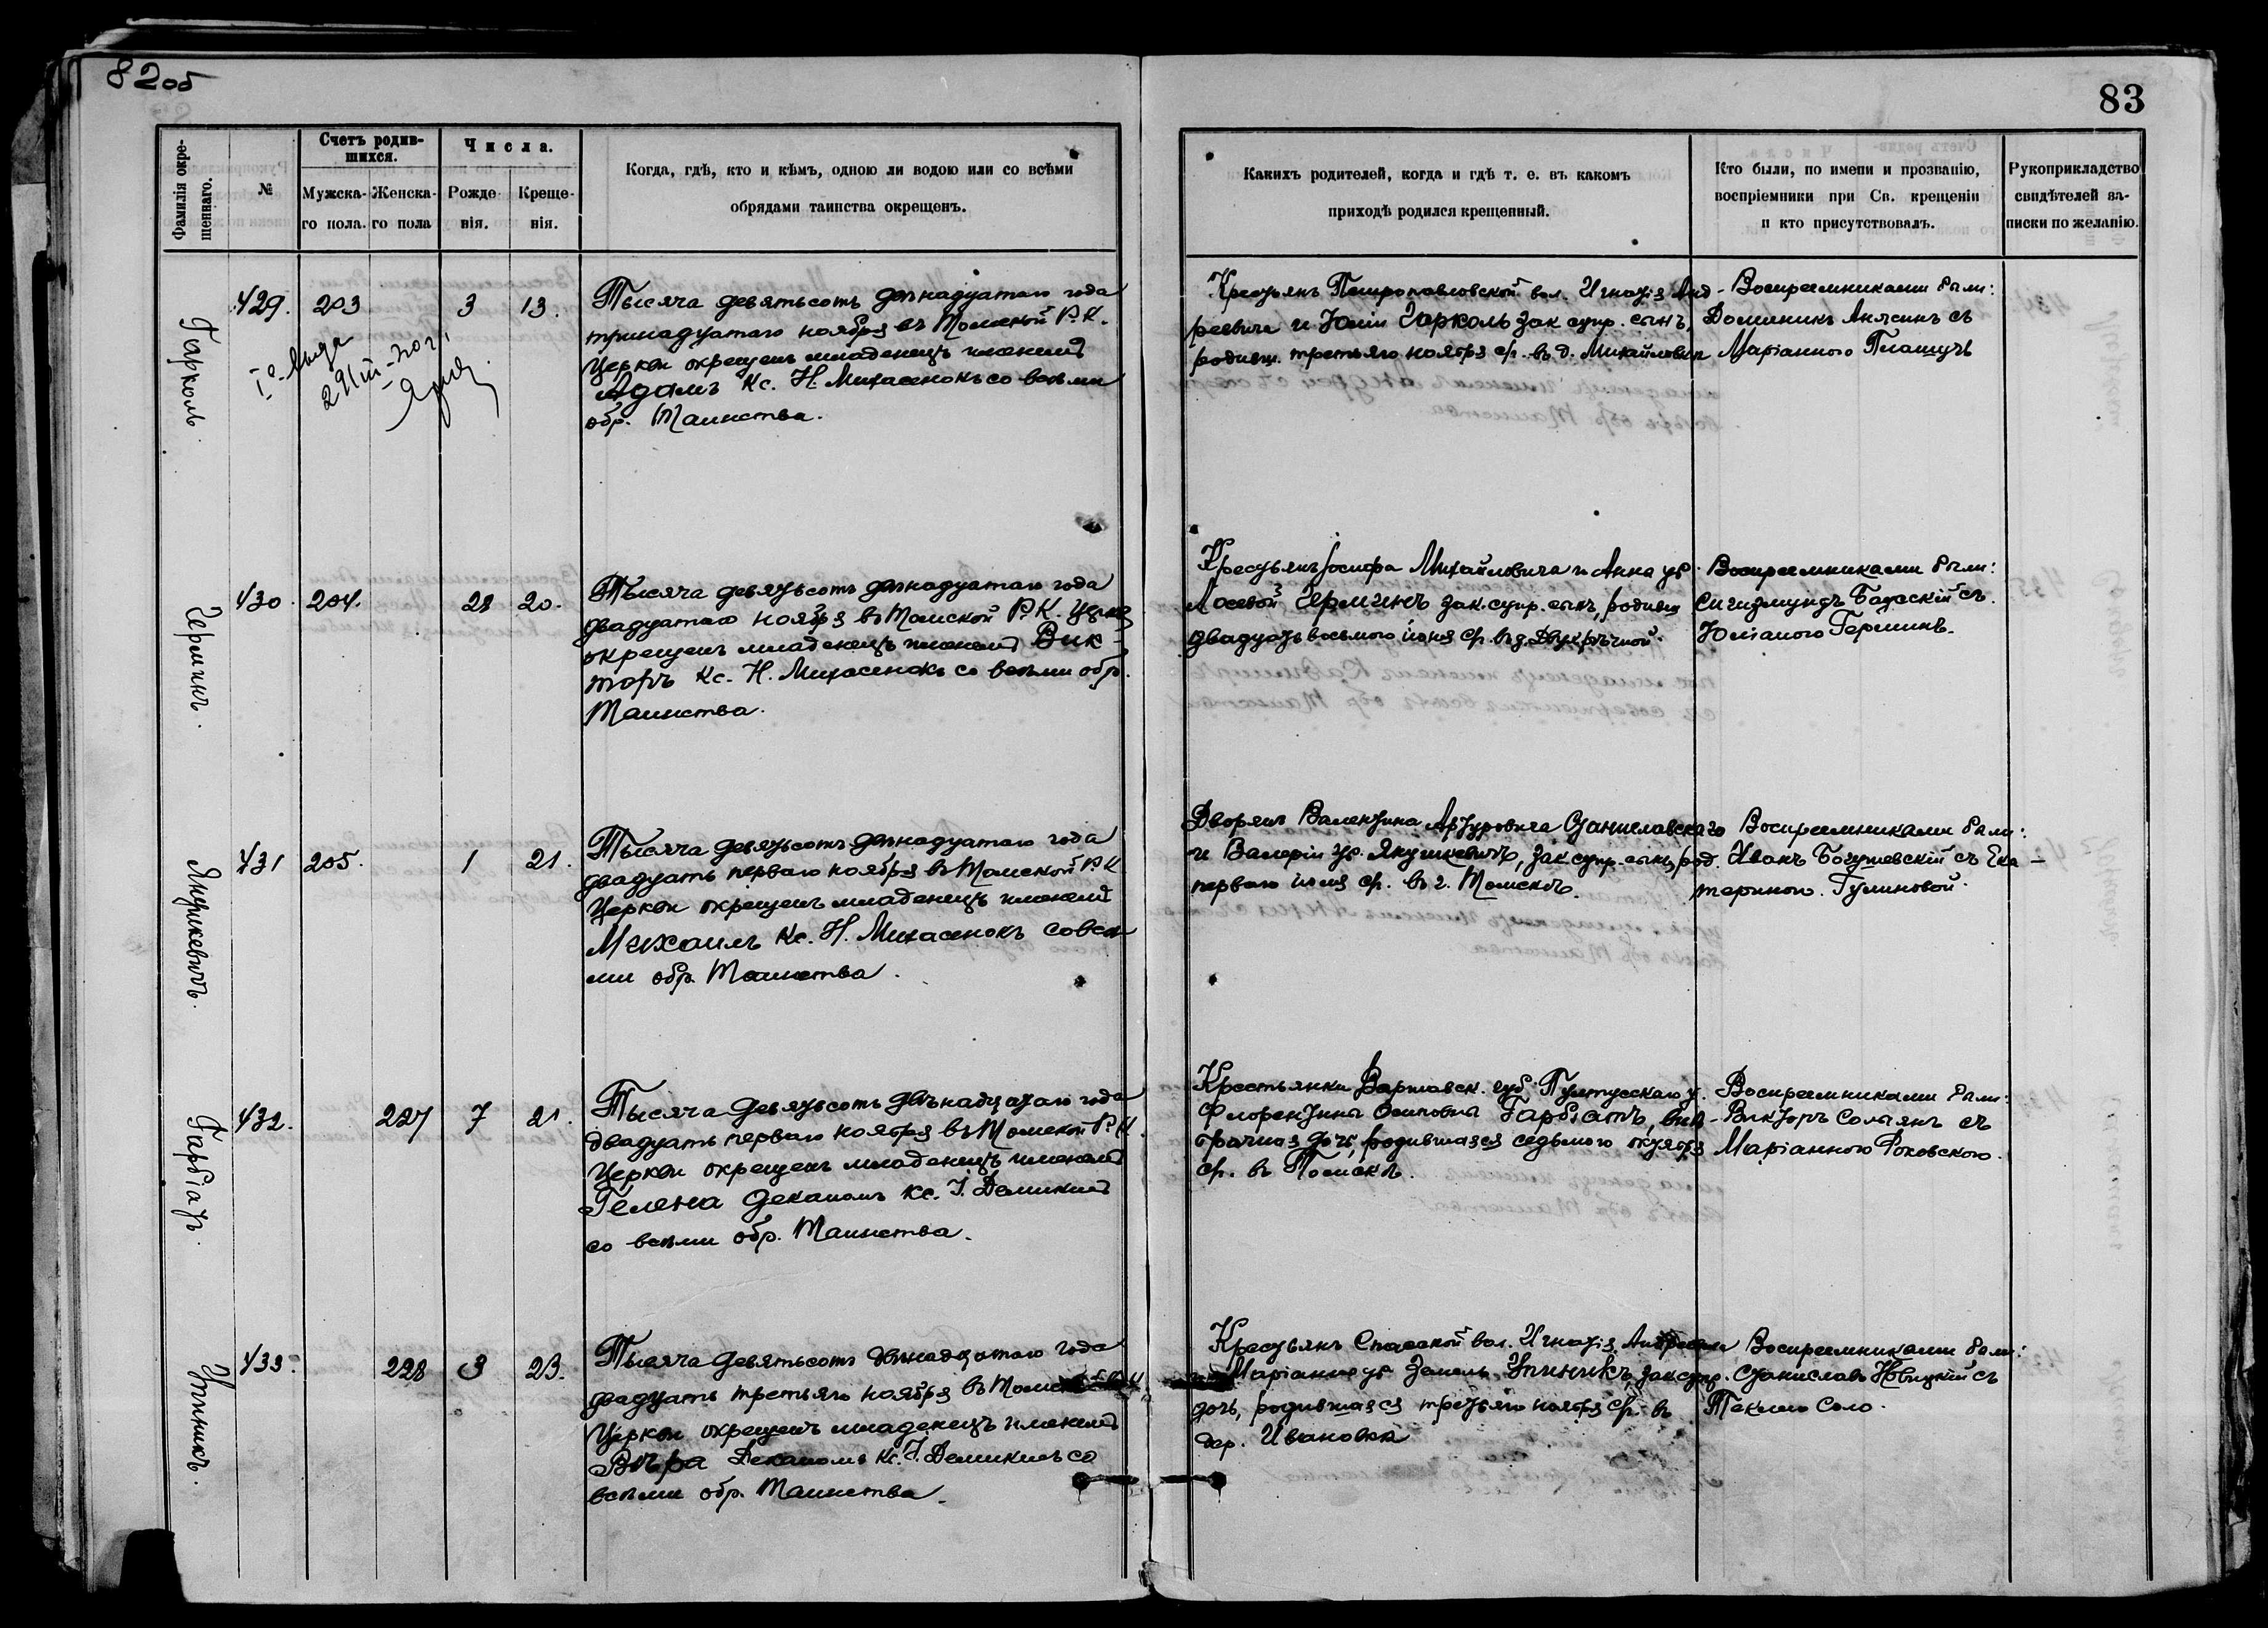 82об
83
Фамилія окре-
щеннаго.
№
Счетъ родив-
шихся.
Мужска-
го пола.
Женска-
го пола
Числа.
Рожде
нія.
Креще-
нія.
Когда, гдѣ, кто и кѣмъ, одною ли водою или со всѣми
обрядами таинства окрещенъ.
Какихъ родителей, когда и гдѣ т. е. въ какомъ
приходѣ родился крещенный.
Кто были, по имени и прозванію,
воспріемники при Св. крещеніи
и кто присутствовалъ.
Рукоприкладство
свидѣтелей за-
писки по желанію.
Гарколь.
429. 203 3 13.
Тысяча девятьсотъ двѣнадцатаго года
тринадцатаго ноября въ Томской Р.К.
Церкви окрещенъ младенецъ именемъ
Адамъ Кс. Н. Михасенокъ со всѣми
обр. Таинства.
Крестьянъ Петропавловской вол. Игнатія Анд-
реевича и Юліи Гарколь зак супр. сынъ,
родивш. третьяго ноября ср. въ д. Михайловкѣ
Воспреемниками были:
Доминикъ съ
Маріанною
Гермимъ.
430. 204. 28 20.
Тысяча девятьсотъ двѣнадцатаго года
двадцатаго ноября въ Томской Р.К. Церкв
окрещенъ младенецъ именемъ Вик-
торъ Кс. Н. Михасенокъ со всѣми обр.
Таинства.
Крестьянъ Іосифа Михайловича и Анны ур.
Лосевой Герминъ зак. супр. сынъ, родивш
двадцать восьмого іюня ср. въ д. Двухрѣчной.
Воспреемниками были:
Сигизмундъ съ
Юліаною Герминъ.
Янушкевичъ.
431 205. 1 21.
Тысяча девятьсотъ двѣнадцатаго года
двадцать перваго ноября въ Томской Р.К
Церкви окрещенъ младенецъ именемъ
Михаилъ Кс. Н. Михасенокъ со всѣ-
ми обр. Таинства.
Дворянъ Валентина Артуровича Станиславскаго
и Валеріи ур. Янушкевичъ, зак супр. сынъ, род.
перваго іюня ср. въ г. Томскѣ.
Воспреемниками были:
Иванъ Богушевскій съ Ека-
териною. Гулиновой.
Гарбіатъ.
432. 227 7 21.
Тысяча девятьсотъ двѣнадцатаго года
двадцать перваго ноября въ Томской Р.К.
Церкви окрещенъ младенецъ именемъ
Гелена Деканомъ Кс. І. Демикисъ
со всѣми обр. Таинства.
Крестьянки Варшавск. губ. Пултусскаго у.
Флорентины Осиповны Гарбіатъ, внѣ-
брачная дочь, родившаяся седьмого октября
ср. въ Томскѣ.
Воспреемниками были:
Викторъ съ
Маріанною Роковскою.
Упиникъ.
433. 228 3 23.
Тысяча девятьсотъ двѣнадцатаго года
двадцать третьяго ноября въ Томской Р.К
Церкви окрещенъ младенецъ именемъ
Вѣра Деканомъ Кс. І. Демикисъ со
всѣми обр. Таинства.
Крестьянъ Спасской вол. Игнатія Андреевича
и Маріанны ур. Упиникъ, зак супр.
дочь, родившаяся третьяго ноября ср. въ
дер. Ивановка
Воспреемниками были:
Станиславъ Новицкій съ
Теклею